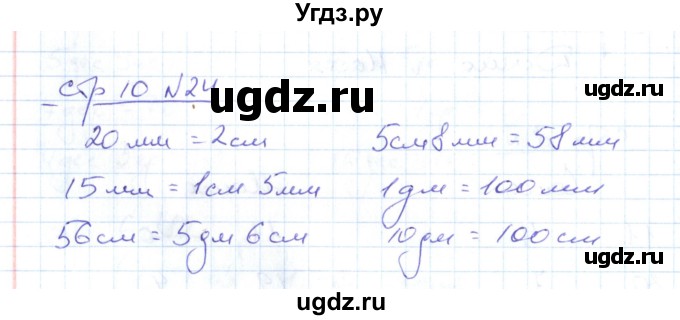 Угдз.ру
ugdz.ru
стр 10 №24
ugdz.ru
20 мм = 2 см
5 см 8 мм = 58 мм
15 мм = 1 см 5 мм
1 дм = 100 мм
56 см = 5 дм 6 см
10 дм = 100 см
ugdz.ru
ugdz.ru